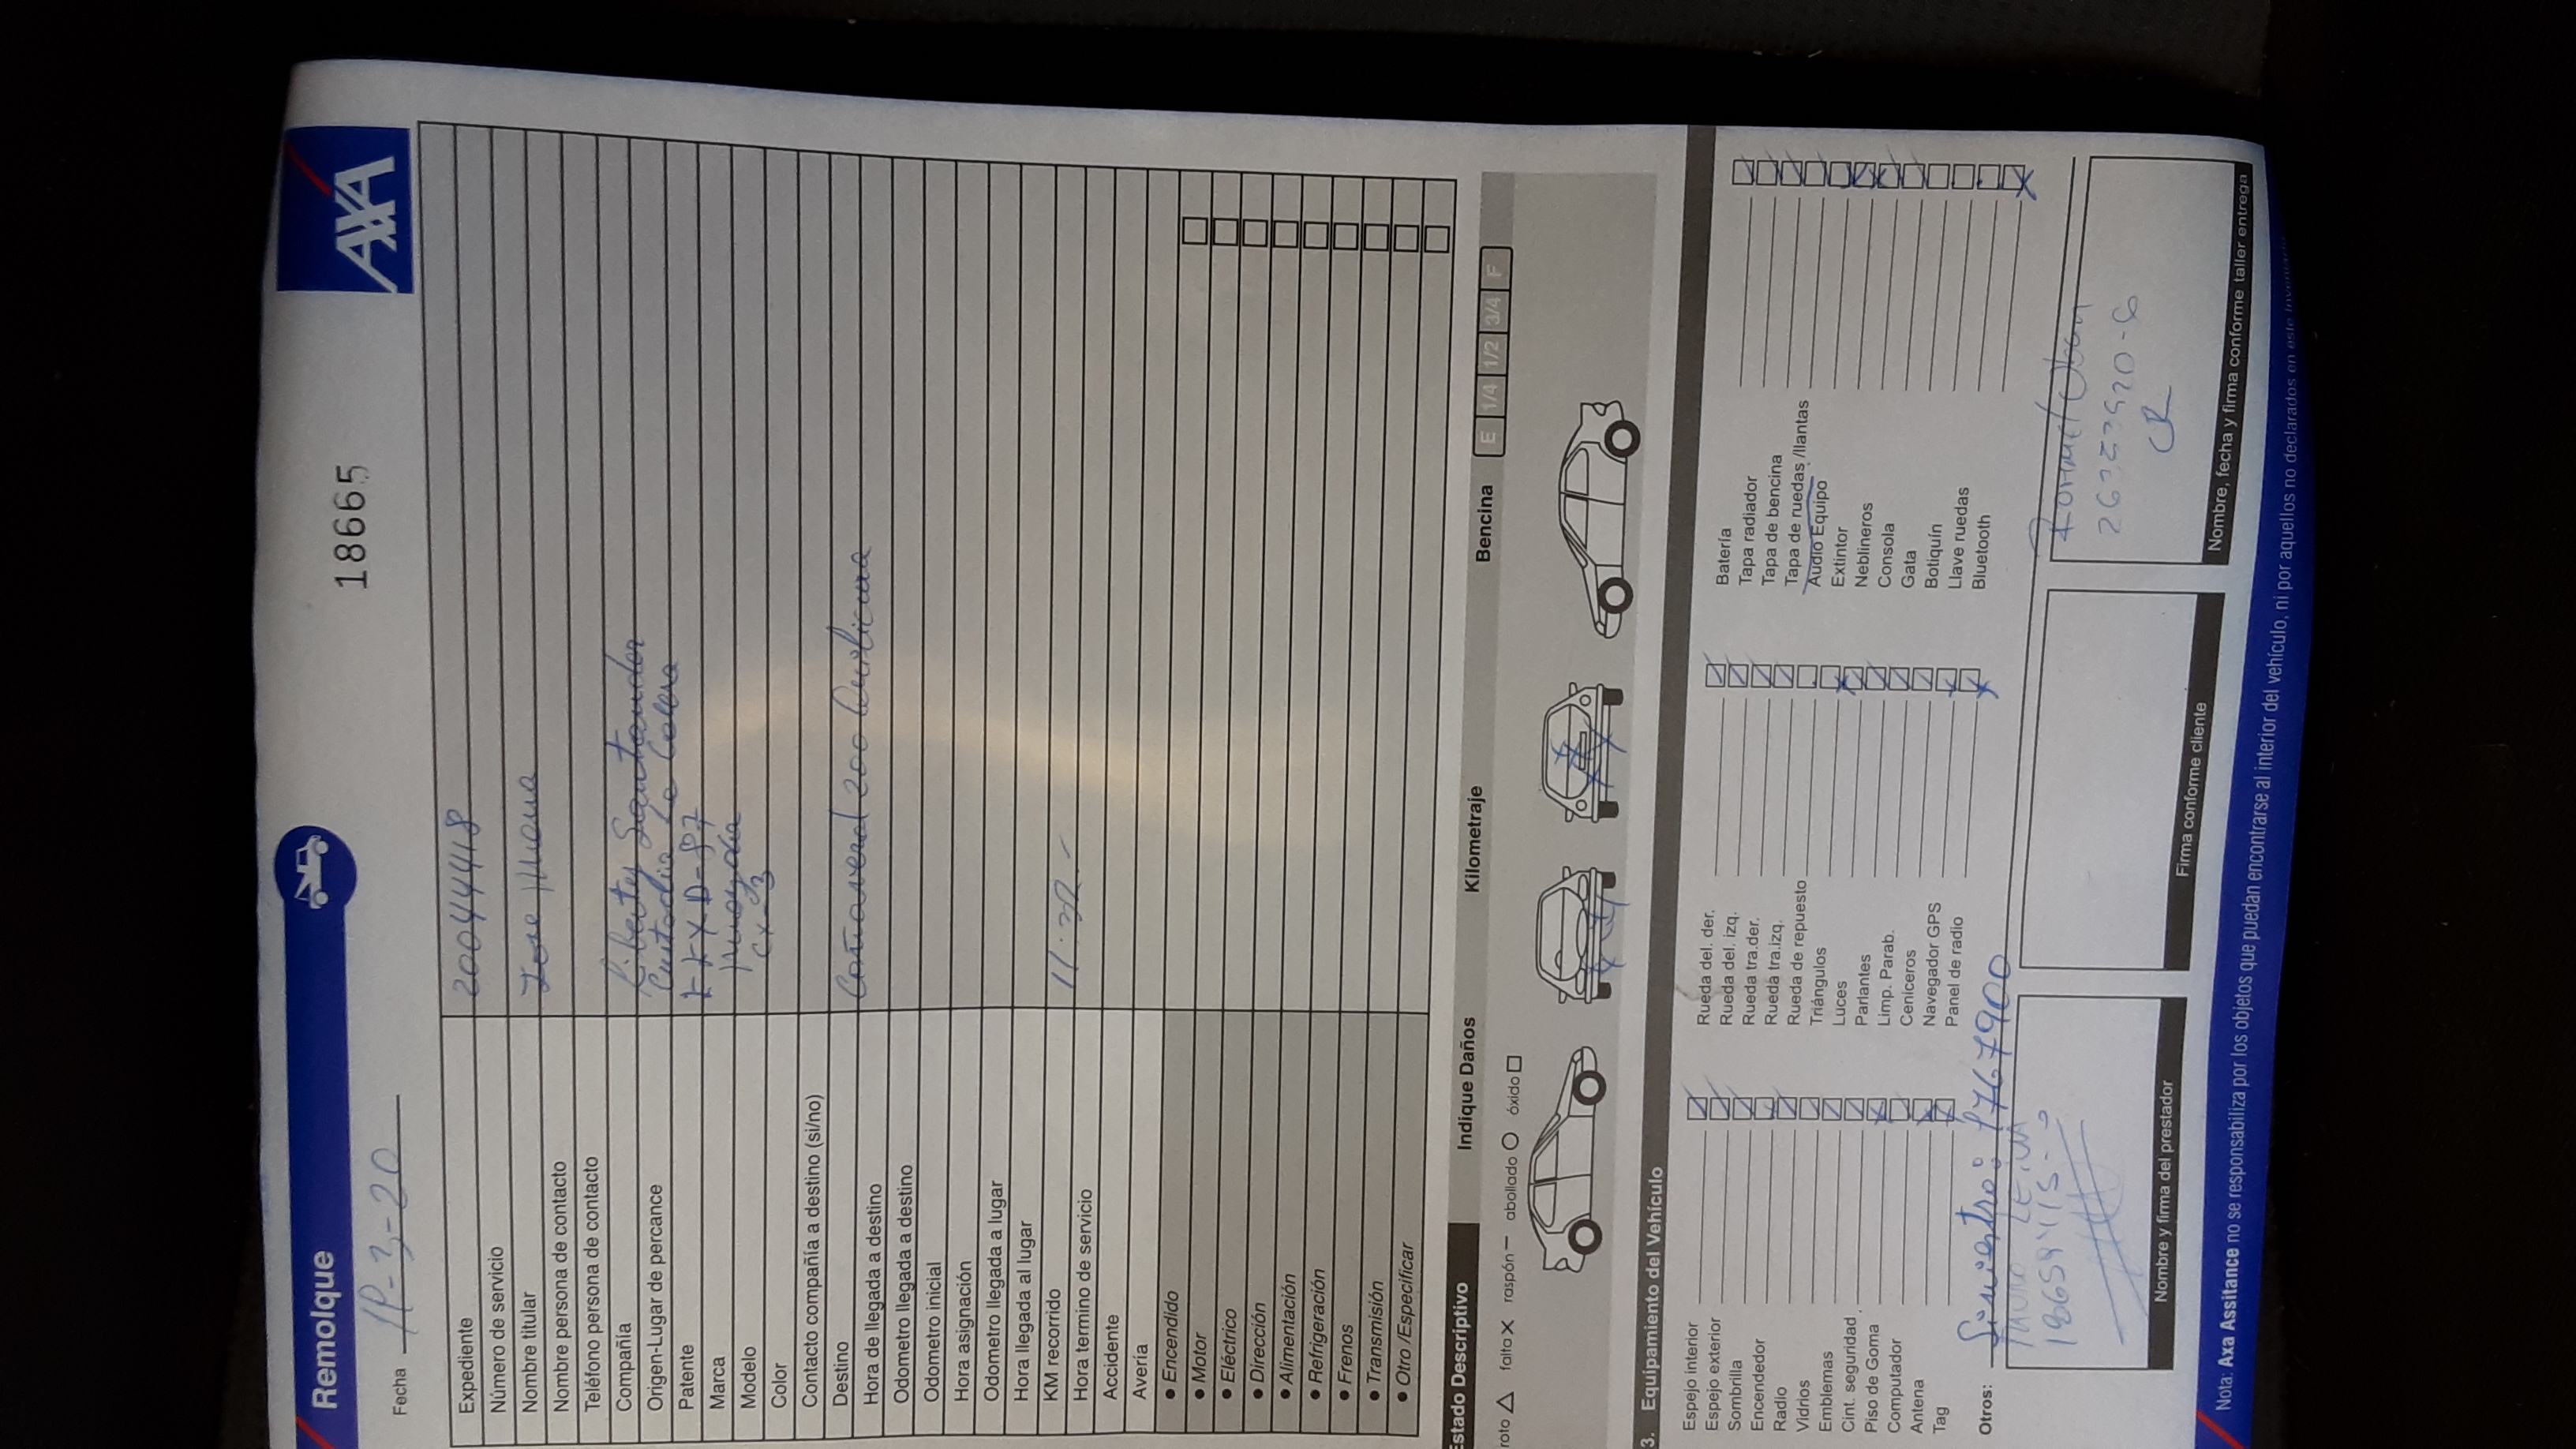 Remolque
AXA
18665
Fecha 18-3-20
Expediente 200444418
Número de servicio
Nombre titular Jose
Nombre persona de contacto
Teléfono persona de contacto
Compañía Liberty Santander
Origen-Lugar de percance Custodia La Calera
Patente KKXD-87
Marca Mazda
Modelo CX-3
Color
Contacto compañía a destino (si/no)
Destino Cañaveral 200 Quilicura
Hora de llegada a destino
Odometro llegada a destino
Odometro inicial
Hora asignación
Odometro llegada a lugar
Hora llegada al lugar
KM recorrido
Hora termino de servicio
Accidente
Avería
• Encendido
• Motor
• Eléctrico
• Dirección
• Alimentación
• Refrigeración
• Frenos
• Transmisión
• Otro /Especificar
Estado Descriptivo Indique Daños Kilometraje Bencina E 1/4 1/2 3/4 F
roto falta X raspón — abollado óxido
3. Equipamiento del Vehículo
Espejo interior
Espejo exterior
Sombrilla
Encendedor
Radio
Vidrios
Emblemas
Cint. seguridad
Piso de Goma
Computador
Antena
Tag
Rueda del. der.
Rueda del. izq.
Rueda tra.der.
Rueda tra.izq.
Rueda de repuesto
Triángulos
Luces
Parlantes
Limp. Parab.
Ceniceros
Navegador GPS
Panel de radio
Batería
Tapa radiador
Tapa de bencina
Tapa de ruedas /llantas
Audio Equipo
Extintor
Neblineros
Consola
Gata
Botiquín
Llave ruedas
Bluetooth
Otros: Siniestro: 1767900
Nombre y firma del prestador
Firma conforme cliente
Nombre, fecha y firma conforme taller entrega
Nota: Axa Assitance no se responsabiliza por los objetos que puedan encontrarse al interior del vehículo, ni por aquellos no declarados en este